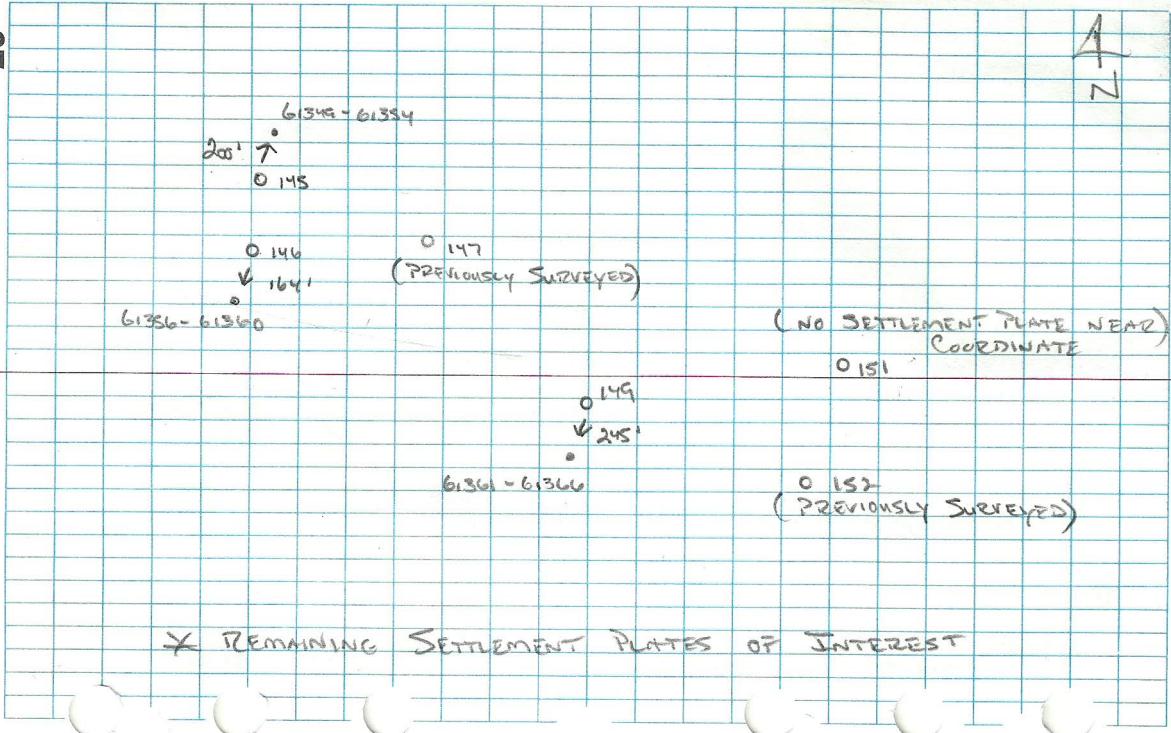 N
61349 - 61354
200'
145
146
164'
61356 - 61360
147
(PREVIOUSLY SURVEYED)
(NO SETTLEMENT PLATE NEAR)
COORDINATE
151
149
245'
61361 - 61366
152
(PREVIOUSLY SURVEYED)
* REMAINING SETTLEMENT PLATES OF INTEREST